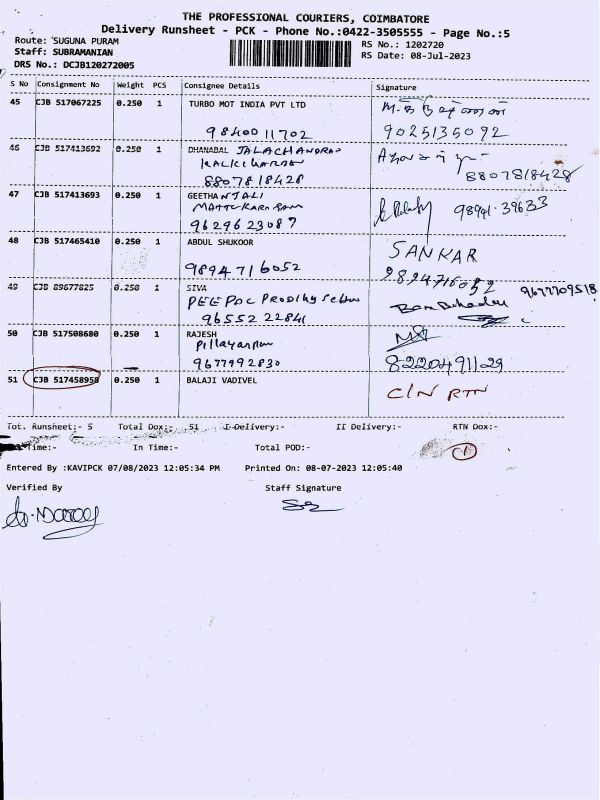 THE PROFESSIONAL COURIERS, COIMBATORE
Delivery Runsheet - PCK - Phone No.:0422-3505555 - Page No.:5
Route: SUGUNA PURAM
RS No.: 1202720
Staff: SUBRAMANIAN
RS Date: 08-Jul-2023
DRS No.: DCJB120272005
S No Consignment No Weight PCS Consignee Details Signature
45 CJB 517067225 0.250 1 TURBO MOT INDIA PVT LTD
9840011702 9025135092
46 CJB 517413692 0.250 1 DHANABAL JALACHANDRAN
8807818428 8807818428
47 CJB 517413693 0.250 1 GEETHANJALI
98941-39633
9629623087
48 CJB 517465410 0.250 1 ABDUL SHUKOOR SANKAR
9894716052 9894716052
49 CJB 89677825 0.250 1 SIVA 9677709518
96552 22841
50 CJB 517508680 0.250 1 RAJESH
9677992830 8220491129
51 CJB 517458958 0.250 1 BALAJI VADIVEL C/N RTN
Tot. Runsheet:- 5 Total Dox:- 51 I-Delivery:- II Delivery:- RTN Dox:-
Time:- In Time:- Total POD:-
Entered By :KAVIPCK 07/08/2023 12:05:34 PM Printed On: 08-07-2023 12:05:40
Verified By Staff Signature